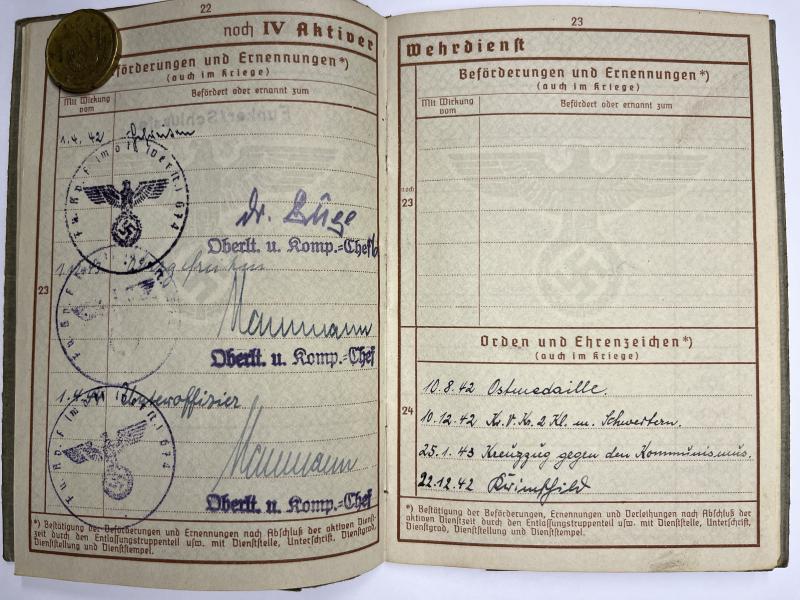 22
noch IV Aktiver
Beförderungen und Ernennungen*)
(auch im Kriege)
Mit Wirkung vom
Befördert oder ernannt zum
1.4.42 Gefreiten
Dr. Büge
Oberlt. u. Komp.=Chef
23
Mammann
Oberlt. u. Komp.=Chef
Unteroffizier
Mammann
Oberlt. u. Komp.=Chef
*) Bestätigung der Beförderungen und Ernennungen nach Abschluß der aktiven Dienst-
zeit durch den Entlassungstruppenteil usw. mit Dienststelle, Unterschrift, Dienstgrad,
Dienststellung und Dienststempel.
23
Wehrdienst
Beförderungen und Ernennungen*)
(auch im Kriege)
Mit Wirkung vom
Befördert oder ernannt zum
noch
23
Orden und Ehrenzeichen*)
(auch im Kriege)
10.8.42 Ostmedaille.
24
10.12.42 Kr.V.Kr. 2 Kl. m. Schwertern.
25.1.43 Kreuzzug gegen den Kommunismus.
22.12.42 Krimschild
*) Bestätigung der Beförderungen, Ernennungen und Verleihungen nach Abschluß der
aktiven Dienstzeit durch den Entlassungstruppenteil usw. mit Dienststelle, Unterschrift,
Dienstgrad, Dienststellung und Dienststempel.